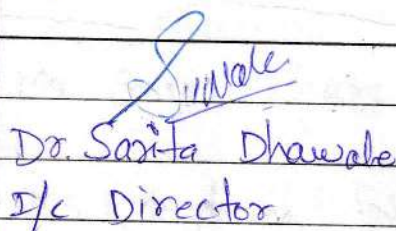 Dr. Sarita Dhawale
I/c Director.